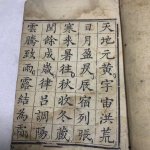 天地元黃。宇宙洪荒。
日月盈昃。辰宿列張。
寒來暑往。秋收冬藏。
閏餘成歲。律呂調陽。
雲騰致雨。露結為霜。